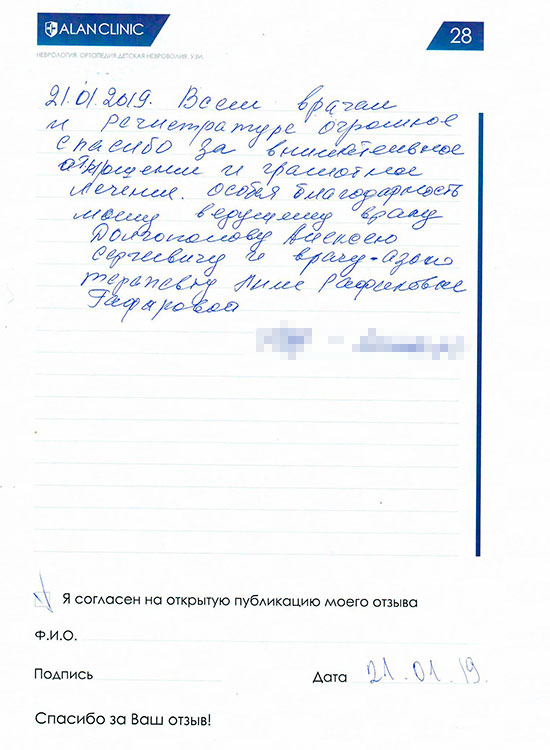 ALAN CLINIC
28
НЕВРОЛОГИЯ. ОРТОПЕДИЯ.ДЕТСКАЯ НЕВРОЛОГИЯ. УЗИ.
21.01.2019. Всем врачам
и регистратуре огромное
спасибо за внимательное
отношении и грамотное
лечении. Особая благодарность
моему ведущему врачу
Долгополову Алексею
Сергеевичу и врачу-
терапевту Нине Рафиковне
Гафаровой
Я согласен на открытую публикацию моего отзыва
Ф.И.О.
Подпись
Дата 21.01.19.
Спасибо за Ваш отзыв!